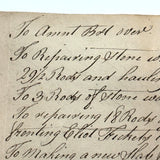 To Amnt Bot Over
To Repairing Stone w
29½ Rods and haulin
To 3 Rods of Stone w
To repairing 18 Rods
fronting Eliot
To Making a new